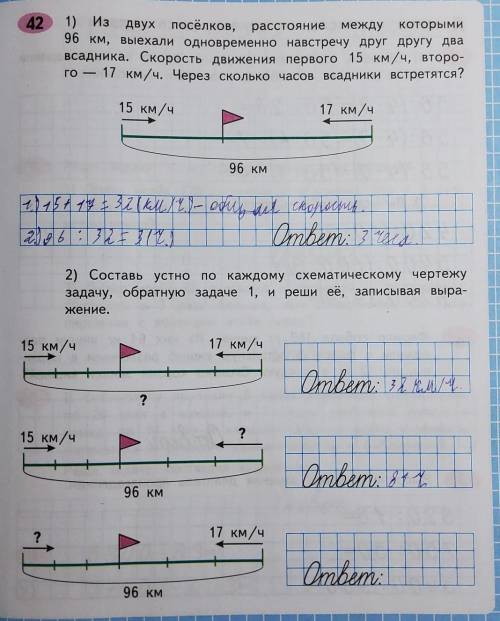 42
1) Из двух посёлков, расстояние между которыми
96 км, выехали одновременно навстречу друг другу два
всадника. Скорость движения первого 15 км/ч, второ-
го — 17 км/ч. Через сколько часов всадники встретятся?
15 км/ч 17 км/ч
96 км
1.) 15 + 17 = 32 (км/ч) – общая скорость.
2) 96 : 32 = 3 (ч.) Ответ: 3 часа.
2) Составь устно по каждому схематическому чертежу
задачу, обратную задаче 1, и реши её, записывая выра-
жение.
15 км/ч 17 км/ч
?
Ответ: 32 км/ч.
15 км/ч ?
96 км
Ответ: 81 ч
? 17 км/ч
96 км
Ответ: